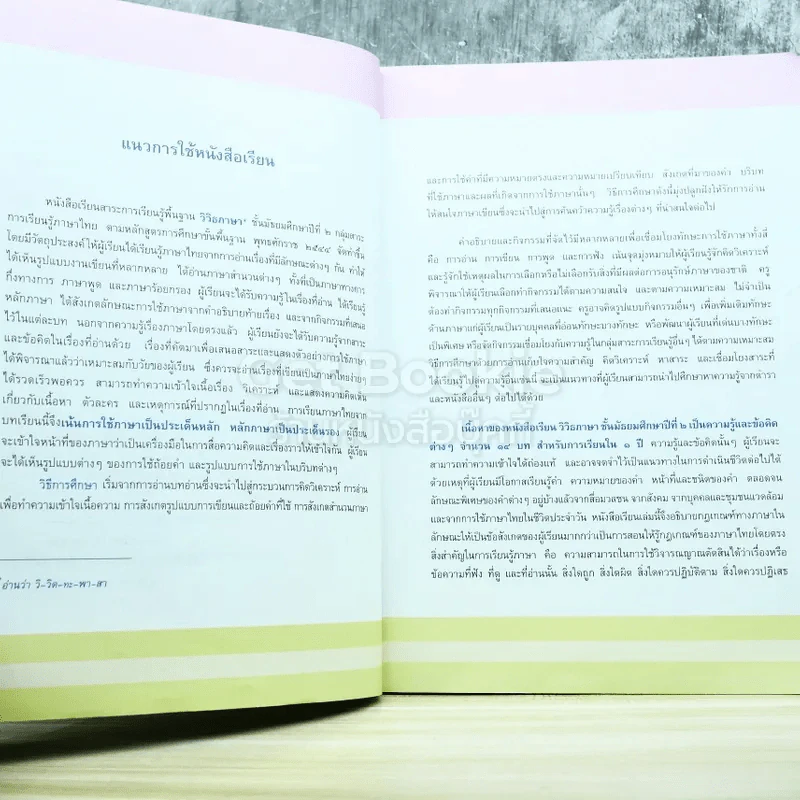 แนวการใช้หนังสือเรียน
หนังสือเรียนสาระการเรียนรู้พื้นฐาน วิวิธภาษา* ชั้นมัธยมศึกษาปีที่ ๒ กลุ่มสาระ
การเรียนรู้ภาษาไทย ตามหลักสูตรการศึกษาขั้นพื้นฐาน พุทธศักราช ๒๕๔๔ จัดทำขึ้น
โดยมีวัตถุประสงค์ให้ผู้เรียนได้เรียนรู้ภาษาไทยจากการอ่านเรื่องที่มีลักษณะต่างๆ กัน ทำให้
ได้เห็นรูปแบบงานเขียนที่หลากหลาย ได้อ่านภาษาสำนวนต่างๆ ทั้งที่เป็นภาษาทางการ
กึ่งทางการ ภาษาพูด และภาษาร้อยกรอง ผู้เรียนจะได้รับความรู้ในเรื่องที่อ่าน ได้เรียนรู้
หลักภาษา ได้สังเกตลักษณะการใช้ภาษาจากคำอธิบายท้ายเรื่อง และจากกิจกรรมที่เสนอ
ไว้ในแต่ละบท นอกจากความรู้เรื่องภาษาโดยตรงแล้ว ผู้เรียนยังจะได้รับความรู้จากสาระ
และข้อคิดในเรื่องที่อ่านด้วย เรื่องที่คัดมาเพื่อเสนอสาระและแสดงตัวอย่างการใช้ภาษา
ได้พิจารณาแล้วว่าเหมาะสมกับวัยของผู้เรียน ซึ่งควรจะอ่านเรื่องที่เขียนเป็นภาษาไทยง่ายๆ
ได้รวดเร็วพอควร สามารถทำความเข้าใจเนื้อเรื่อง วิเคราะห์ และแสดงความคิดเห็น
เกี่ยวกับเนื้อหา ตัวละคร และเหตุการณ์ที่ปรากฏในเรื่องที่อ่าน การเรียนภาษาไทยจาก
บทเรียนนี้จึงเน้นการใช้ภาษาเป็นประเด็นหลัก หลักภาษาเป็นประเด็นรอง ผู้เรียน
จะเข้าใจหน้าที่ของภาษาว่าเป็นเครื่องมือในการสื่อความคิดและเรื่องราวให้เข้าใจกัน ผู้เรียน
จะได้เห็นรูปแบบต่างๆ ของการใช้ถ้อยคำ และรูปแบบการใช้ภาษาในบริบทต่างๆ
วิธีการศึกษา เริ่มจากการอ่านบทอ่านซึ่งจะนำไปสู่กระบวนการคิดวิเคราะห์ การอ่าน
เพื่อทำความเข้าใจเนื้อความ การสังเกตรูปแบบการเขียนและถ้อยคำที่ใช้ การสังเกตสำนวนภาษา
อ่านว่า วิ-วิด-ทะ-พา-สา
และการใช้คำที่มีความหมายตรงและความหมายเปรียบเทียบ สังเกตที่มาของคำ บริบท
ที่ใช้ภาษาและผลที่เกิดจากการใช้ภาษานั้นๆ วิธีการศึกษาดังนี้มุ่งปลูกฝังให้รักการอ่าน
ให้สนใจภาษาเขียนซึ่งจะนำไปสู่การค้นคว้าความรู้เรื่องต่างๆ ที่น่าสนใจต่อไป
คำอธิบายและกิจกรรมที่จัดไว้มีหลากหลายเพื่อเชื่อมโยงทักษะการใช้ภาษาทั้งสี่
คือ การอ่าน การเขียน การพูด และการฟัง เน้นจุดมุ่งหมายให้ผู้เรียนรู้จักคิดวิเคราะห์
และรู้จักใช้เหตุผลในการเลือกหรือไม่เลือกรับสิ่งที่มีผลต่อการอนุรักษ์ภาษาของชาติ ครู
พิจารณาให้ผู้เรียนเลือกทำกิจกรรมได้ตามความสนใจ และตามความเหมาะสม ไม่จำเป็น
ต้องทำกิจกรรมทุกกิจกรรมที่เสนอแนะ ครูอาจคิดรูปแบบกิจกรรมอื่นๆ เพื่อเพิ่มเติมทักษะ
ด้านภาษาแก่ผู้เรียนเป็นรายบุคคลที่อ่อนทักษะบางทักษะ หรือพัฒนาผู้เรียนที่เด่นบางทักษะ
เป็นพิเศษ หรือจัดกิจกรรมเชื่อมโยงกับความรู้ในกลุ่มสาระการเรียนรู้อื่นๆ ได้ตามความเหมาะสม
วิธีการศึกษาด้วยการอ่านเก็บใจความสำคัญ คิดวิเคราะห์ หาสาระ และเชื่อมโยงสาระที่
ได้เรียนรู้ไปสู่ความรู้อื่นเช่นนี้ จะเป็นแนวทางที่ผู้เรียนสามารถนำไปศึกษาหาความรู้จากตำรา
และหนังสืออื่นๆ ต่อไปได้ด้วย
เนื้อหาของหนังสือเรียน วิวิธภาษา ชั้นมัธยมศึกษาปีที่ ๒ เป็นความรู้และข้อคิด
ต่างๆ จำนวน ๑๔ บท สำหรับการเรียนใน ๑ ปี ความรู้และข้อคิดนั้นๆ ผู้เรียนจะ
สามารถทำความเข้าใจได้ถ่องแท้ และอาจจดจำไว้เป็นแนวทางในการดำเนินชีวิตต่อไปได้
ด้วยเหตุที่ผู้เรียนมีโอกาสเรียนรู้คำ ความหมายของคำ หน้าที่และชนิดของคำ ตลอดจน
ลักษณะพิเศษของคำต่างๆ อยู่บ้างแล้วจากสื่อมวลชน จากสังคม จากบุคคลและชุมชนแวดล้อม
และจากการใช้ภาษาไทยในชีวิตประจำวัน หนังสือเรียนเล่มนี้จึงอธิบายกฎเกณฑ์ทางภาษาใน
ลักษณะให้เป็นข้อสังเกตของผู้เรียนมากกว่าเป็นการสอนให้รู้กฎเกณฑ์ของภาษาไทยโดยตรง
สิ่งสำคัญในการเรียนรู้ภาษา คือ ความสามารถในการใช้วิจารณญาณตัดสินได้ว่าเรื่องหรือ
ข้อความที่ฟัง ที่ดู และที่อ่านนั้น สิ่งใดถูก สิ่งใดผิด สิ่งใดควรปฏิบัติตาม สิ่งใดควรปฏิเสธ